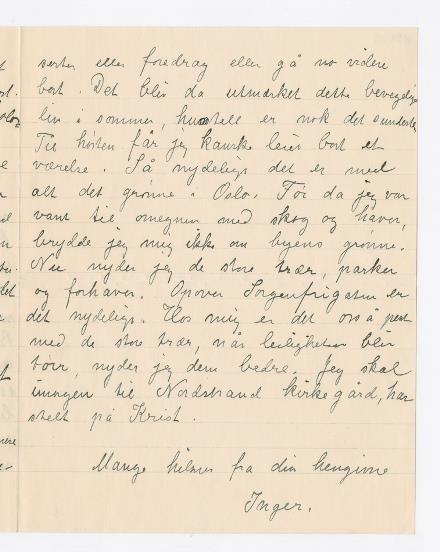 serter eller foredrag eller gå no videre
bort. Det blir da utmerket dette bevegelige
liv i sommer, hustell er nok det sundeste.
Til høsten får jeg kanske leiet bort et
værelse. Så nydelig det er med
alt det grønne i Oslo. Før da jeg var
vant til omegnen med skog og haver,
brydde jeg mig ikke om byens grønne.
Nu nyder jeg de store trær, parker
og forhaver. Opover Sorgenfrigaten er
det nydelig. Hos mig er det også pent
med de store trær, når leiligheten blir
nyder jeg dem bedre. Jeg skal
imorgen til Nordstrand kirkegård, har
stelt på Krist.
Mange hilsner fra din hengivne
Inger.